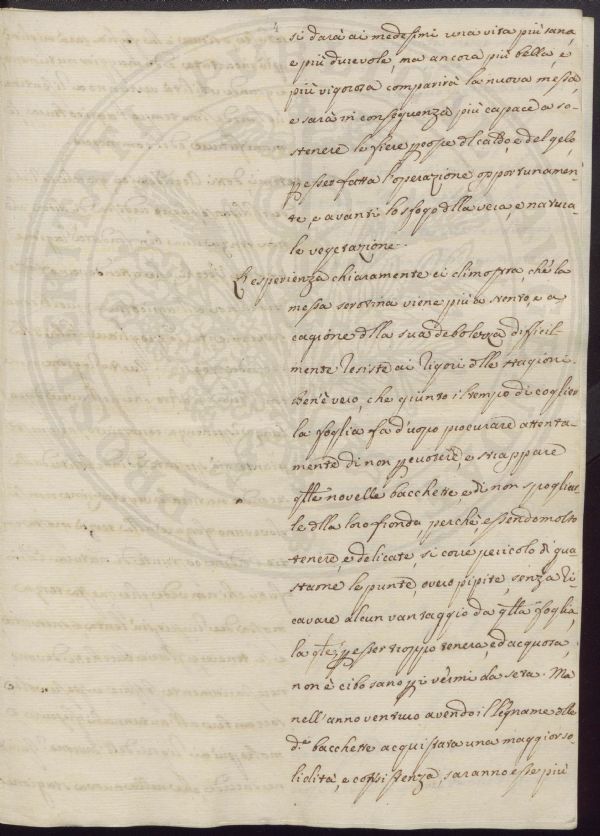 4
si darà ai medesimi una vita più sana,
e più durevole, ma ancora più bella, e
più vigorosa comparirà la nuova messa,
e sarà in conseguenza più capace a so-
stenere le fiere prove dl caldo, e del gelo,
p esser fatta l'operazione opportunamen-
te, e avanti lo sfogo dlla vera, e natura-
le vegetazione.
L'esperienza chiaramente ci dimostra, che la
messa serotina viene più a stento, e a
cagione dlla sua debolezza difficil
mente resiste ai rigori dlle stagioni.
Ben'è vero, che giunto il tempo di coglier
la foglia fa d'uopo procurare attenta-
mente di non percuotere, e strappare
qlle novelle bacchette, e di non spogliar
le dlla loro fronda, perchè, essendo molto
tenere, e delicate, si corre pericolo di gua
starne le punte, overo pipite, senza ri
cavare alcun vantaggio da qlla foglia,
la qle p esser troppo tenera, ed acquosa,
non è cibo sano p i vermi da seta. Ma
nell'anno venturo avendo il legname dlle
de bacchette acquistata una maggior so-
lidità, e consistenza, saranno esse più